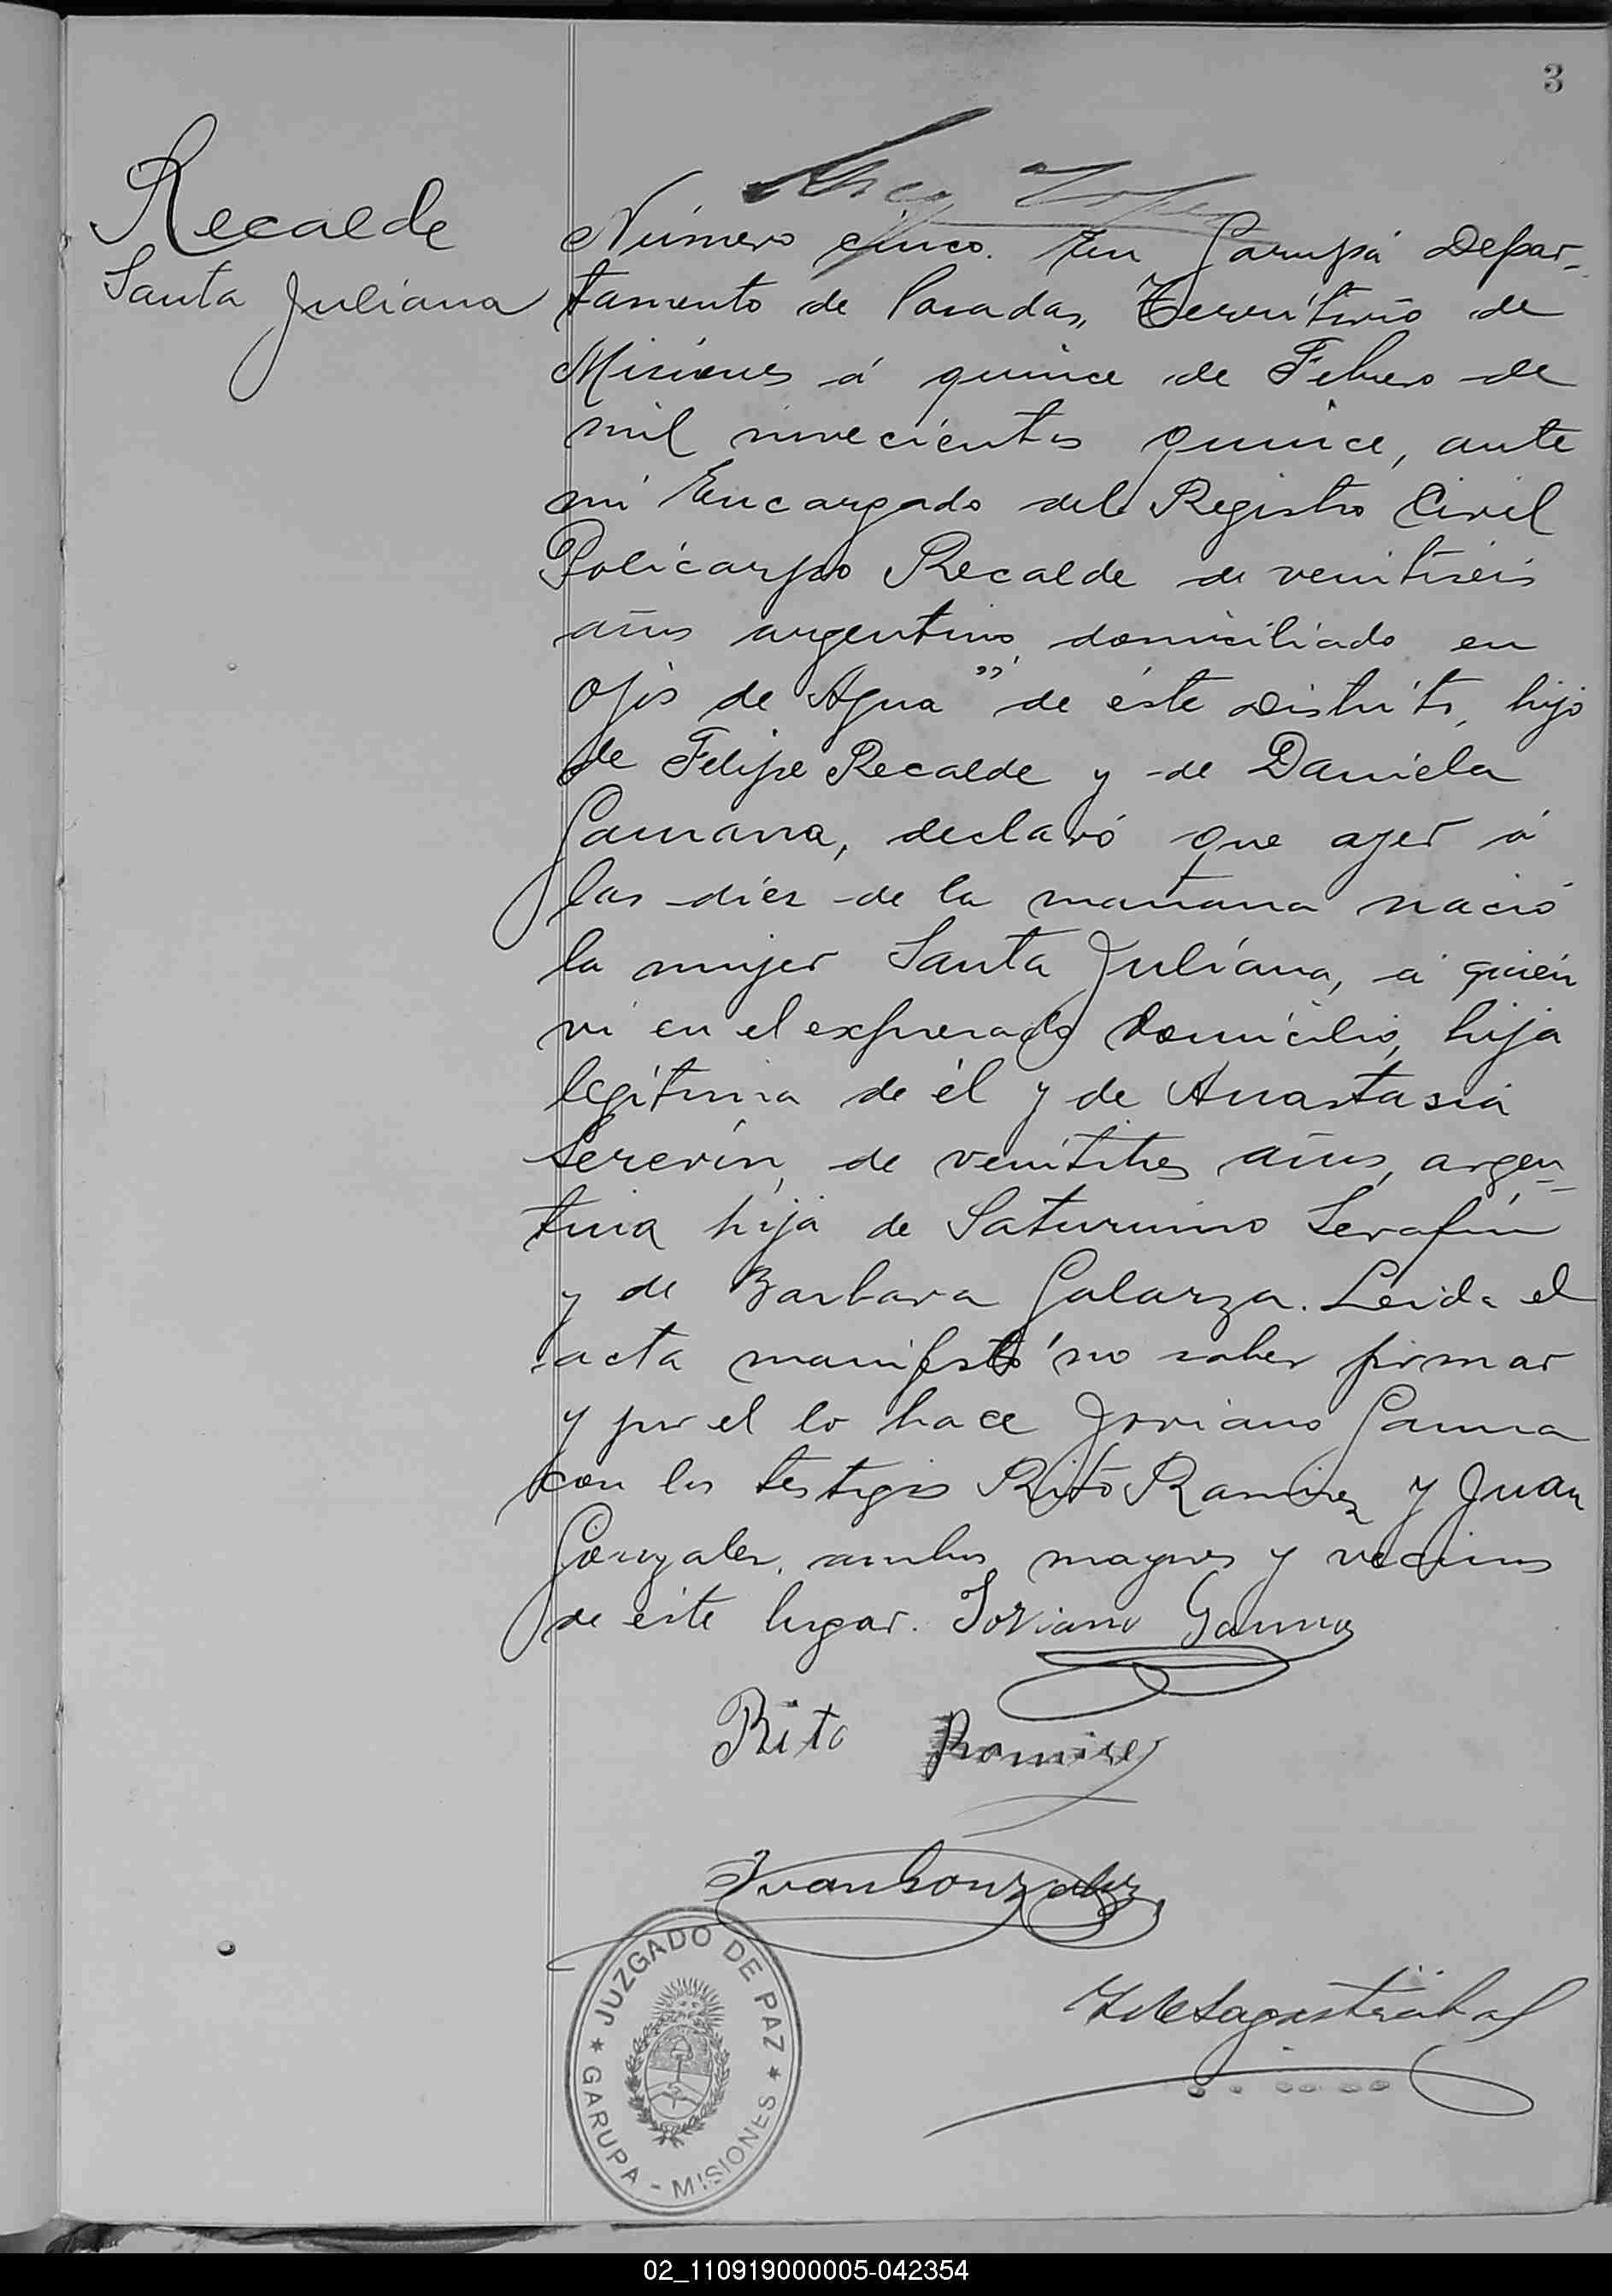 3
Recalde
Santa Juliana
Número cinco. En Garupá Depar-
tamento de Posadas, Territorio de
Misiones á quince de Febrero de
mil novecientos quince, ante
mi Encargado del Registro Civil
Policarpo Recalde de veintiseis
años argentino, domiciliado en
Ojos de Agua" de éste Distrito, hijo
de Felipe Recalde y de Daniela
declaró que ayer á
las diez de la mañana nació
la mujer Santa Juliana, á quién
vi en el expresado domicilio, hija
legítima de él y de Anastasia
Sererín, de veintitres años, argen-
tina hija de Saturnino Serafin
y de Barbara Galarza. Leida el
acta manifestó no saber firmar
y por el lo hace Joviano Gauna
con los testigos Rito Ramirez y Juan
Gonzalez, ambos mayores y vecinos
de éste lugar. Joviano Gauna
Rito Ramirez
Juan Gonzalez
JUZGADO DE PAZ
GARUPA - MISIONES
02_110919000005-042354